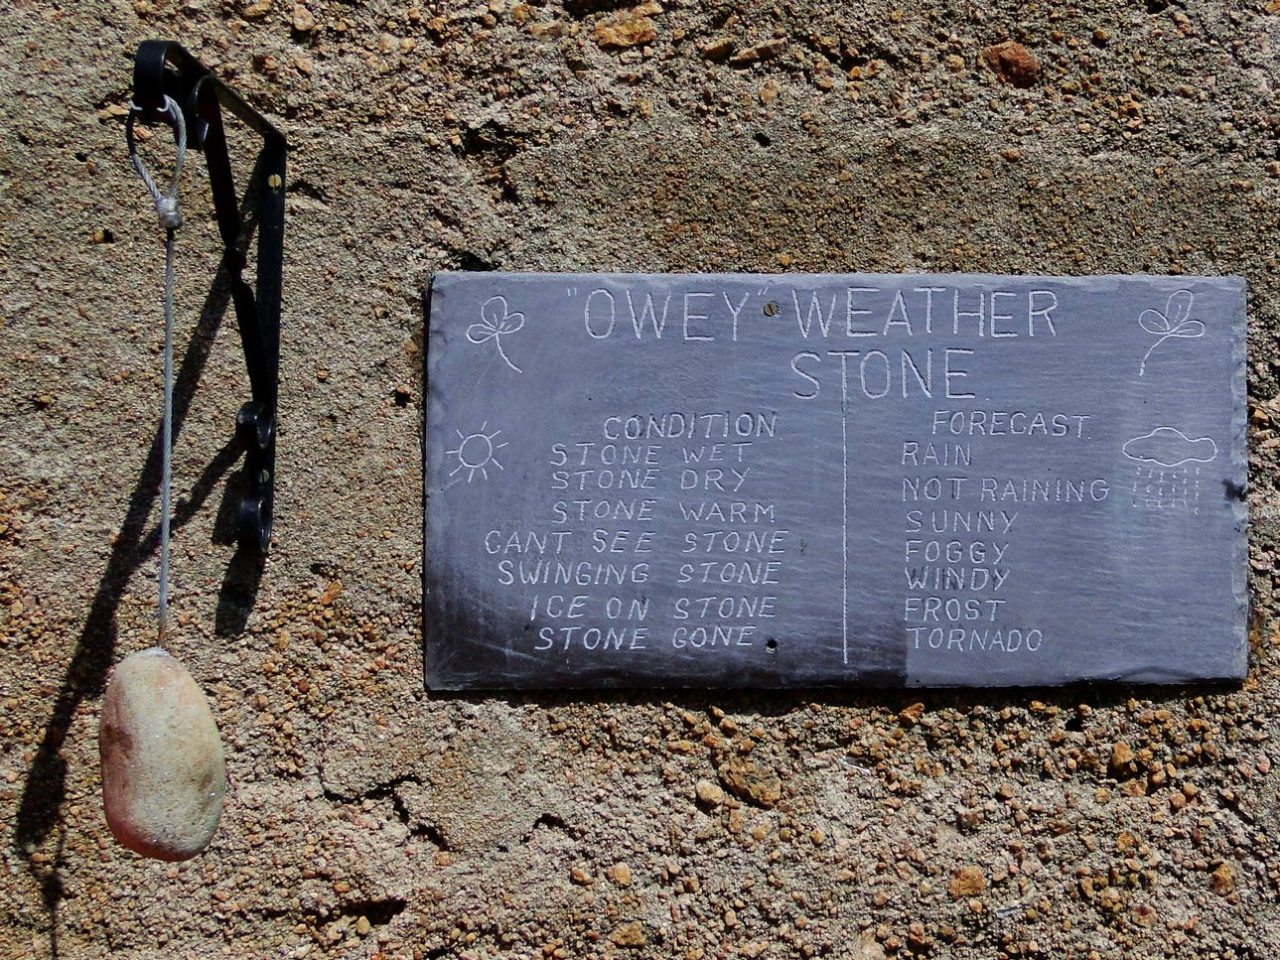 "OWEY" WEATHER
STONE
CONDITION FORECAST
STONE WET RAIN
STONE DRY NOT RAINING
STONE WARM SUNNY
CANT SEE STONE FOGGY
SWINGING STONE WINDY
ICE ON STONE FROST
STONE GONE TORNADO